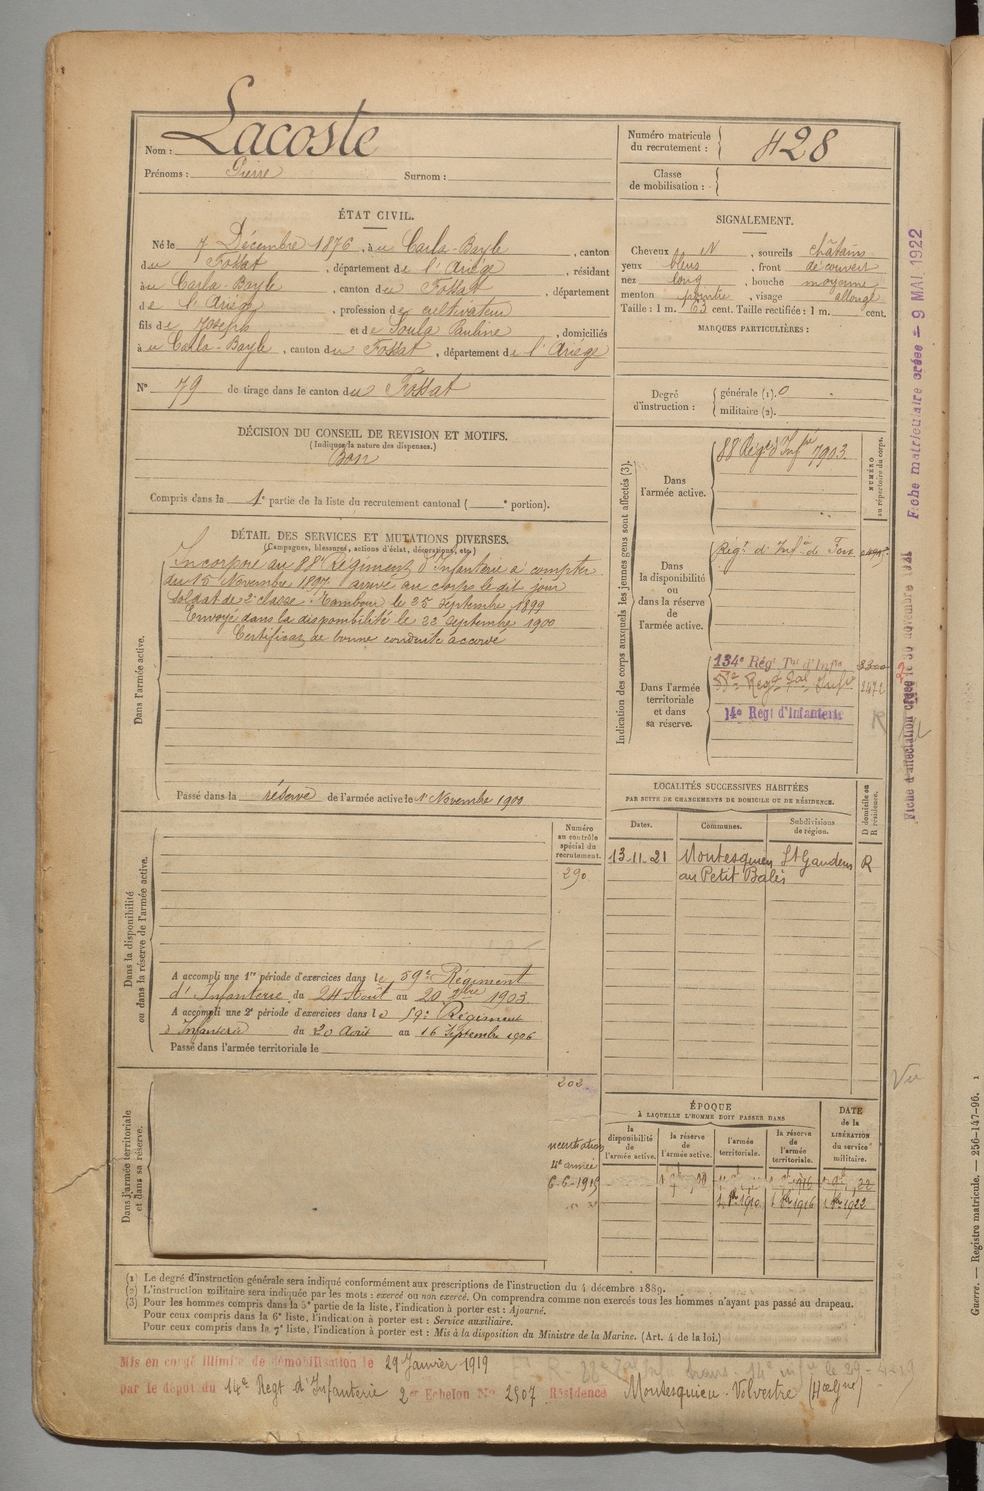 Nom : Lacoste
Prénoms : Pierre Surnom :
Numéro matricule du recrutement : 428
Classe de mobilisation :
ÉTAT CIVIL.
Né le 7 Décembre 1876, à u Carla-Bayle, canton
du Fossat, département de l'Ariège, résidant
au Carla-Bayle, canton du Fossat, département
de l'Ariège, profession de cultivateur
fils de Joseph et de Soula Pauline, domiciliés
à u Carla-Bayle, canton du Fossat, département de l'Ariège
N° 79 de tirage dans le canton du Fossat
SIGNALEMENT.
Cheveux N, sourcils châtains
yeux bleus, front découvert
nez long, bouche moyenne
menton pointu, visage allongé
Taille : 1 m. 63 cent. Taille rectifiée : 1 m. cent.
MARQUES PARTICULIÈRES :
Degré d'instruction : générale (1). 0
militaire (2).
DÉCISION DU CONSEIL DE REVISION ET MOTIFS.
(Indiquer la nature des dispenses.)
Bon
Compris dans la 1e partie de la liste du recrutement cantonal ( e portion).
DÉTAIL DES SERVICES ET MUTATIONS DIVERSES.
(Campagnes, blessures, actions d'éclat, décorations, etc.)
Dans l'armée active.
Incorporé au 88e Régiment d'Infanterie à compter
du 15 Novembre 1897 arrivé au corps le dit jour
soldat de 2e classe. Tambour le 25 septembre 1899
Envoyé dans la disponibilité le 22 septembre 1900
Certificat de bonne conduite accordé
Passé dans la réserve de l'armée active le 1r Novembre 1900
Indication des corps auxquels les jeunes gens sont affectés (3).
NUMÉRO au répertoire du corps.
Dans l'armée active.
88 Régt d'Infrie 7903.
Dans la disponibilité ou dans la réserve de l'armée active.
Régt d'Infie de Foix
Dans l'armée territoriale et dans sa réserve.
134e Régt Tal d'Infie 3300
2472
14e Regt d'Infanterie
R
LOCALITÉS SUCCESSIVES HABITÉES
PAR SUITE DE CHANGEMENTS DE DOMICILE OU DE RÉSIDENCE.
Dates. Communes. Subdivisions de région. D domicile ou R résidence.
13-11-21 Montesquieu St Gaudens R
au Petit Balès
Numéro au contrôle spécial du recrutement.
290
Dans la disponibilité ou dans la réserve de l'armée active.
A accompli une 1re période d'exercices dans le 59e Régiment
d'Infanterie du 24 Août au 20 7bre 1903
A accompli une 2e période d'exercices dans le 59e Régiment
d'Infanterie du 20 Août au 16 Septembre 1906
Passé dans l'armée territoriale le
Dans l'armée territoriale et dans sa réserve.
202
ncentration
4e armée
6-6-1915
ÉPOQUE
À LAQUELLE L'HOMME DOIT PASSER DANS
la disponibilité de l'armée active. la réserve de l'armée active. l'armée territoriale. la réserve de l'armée territoriale. DATE de la LIBÉRATION du service militaire.
1 8bre 1910 1 8bre 1916 1 8bre 1922
(1) Le degré d'instruction générale sera indiqué conformément aux prescriptions de l'instruction du 4 décembre 1889.
(2) L'instruction militaire sera indiquée par les mots : exercé ou non exercé. On comprendra comme non exercés tous les hommes n'ayant pas passé au drapeau.
(3) Pour les hommes compris dans la 5e partie de la liste, l'indication à porter est : Ajourné.
Pour ceux compris dans la 6e liste, l'indication à porter est : Service auxiliaire.
Pour ceux compris dans la 7e liste, l'indication à porter est : Mis à la disposition du Ministre de la Marine. (Art. 4 de la loi.)
Mis en congé illimité de démobilisation le 29 Janvier 1919
par le dépôt du 14e Regt d'Infanterie 2er Echelon No 2507 Résidence Montesquieu-Volvestre (Hte Gne)
Fiche matriculaire créée = 9 MAI 1922
Vu
Guerre. — Registre matricule. — 256-147-96. 1